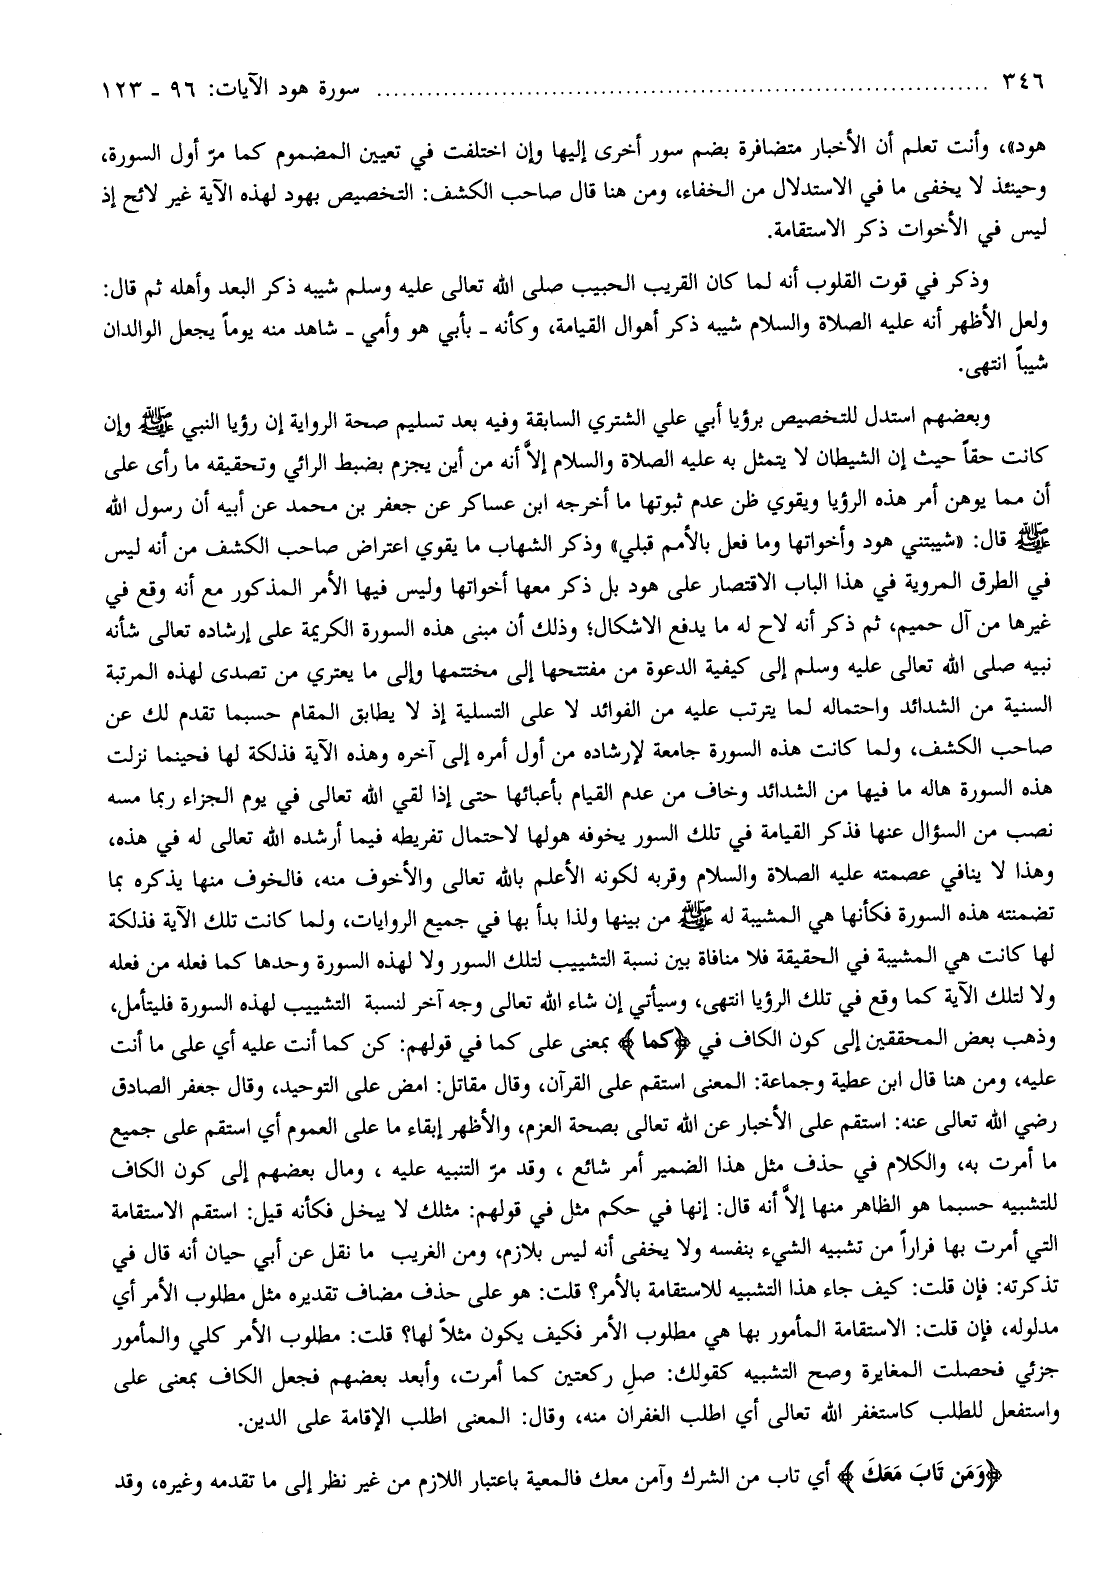 ٣٤٦ ........................................................................ سورة هود الآيات: ٩٦ ـ ١٢٣
هود»، وأنت تعلم أن الأخبار متضافرة بضم سور أخرى إليها وإن اختلفت في تعيين المضموم كما مرّ أول السورة،
وحينئذ لا يخفى ما في الاستدلال من الخفاء، ومن هنا قال صاحب الكشف: التخصيص بهود لهذه الآية غير لائح إذ
ليس في الأخوات ذكر الاستقامة.
وذكر في قوت القلوب أنه لما كان القريب الحبيب صلى الله تعالى عليه وسلم شيبه ذكر البعد وأهله ثم قال:
ولعل الأظهر أنه عليه الصلاة والسلام شيبه ذكر أهوال القيامة، وكأنه ـ بأبي هو وأمي ـ شاهد منه يوماً يجعل الوالدان
شيباً انتهى.
وبعضهم استدل للتخصيص برؤيا أبي علي الشتري السابقة وفيه بعد تسليم صحة الرواية إن رؤيا النبي ﷺ وإن
كانت حقاً حيث إن الشيطان لا يتمثل به عليه الصلاة والسلام إلاَّ أنه من أين يجزم بضبط الرائي وتحقيقه ما رأى على
أن مما يوهن أمر هذه الرؤيا ويقوي ظن عدم ثبوتها ما أخرجه ابن عساكر عن جعفر بن محمد عن أبيه أن رسول الله
ﷺ قال: «شيبتني هود وأخواتها وما فعل بالأمم قبلي» وذكر الشهاب ما يقوي اعتراض صاحب الكشف من أنه ليس
في الطرق المروية في هذا الباب الاقتصار على هود بل ذكر معها أخواتها وليس فيها الأمر المذكور مع أنه وقع في
غيرها من آل حميم، ثم ذكر أنه لاح له ما يدفع الاشكال؛ وذلك أن مبنى هذه السورة الكريمة على إرشاده تعالى شأنه
نبيه صلى الله تعالى عليه وسلم إلى كيفية الدعوة من مفتتحها إلى مختتمها وإلى ما يعتري من تصدى لهذه المرتبة
السنية من الشدائد واحتماله لما يترتب عليه من الفوائد لا على التسلية إذ لا يطابق المقام حسبما تقدم لك عن
صاحب الكشف، ولما كانت هذه السورة جامعة لإرشاده من أول أمره إلى آخره وهذه الآية فذلكة لها فحينما نزلت
هذه السورة هاله ما فيها من الشدائد وخاف من عدم القيام بأعبائها حتى إذا لقي الله تعالى في يوم الجزاء ربما مسه
نصب من السؤال عنها فذكر القيامة في تلك السور يخوفه هولها لاحتمال تفريطه فيما أرشده الله تعالى له في هذه،
وهذا لا ينافي عصمته عليه الصلاة والسلام وقربه لكونه الأعلم بالله تعالى والأخوف منه، فالخوف منها يذكره بما
تضمنته هذه السورة فكأنها هي المشيبة له ﷺ من بينها ولذا بدأ بها في جميع الروايات، ولما كانت تلك الآية فذلكة
لها كانت هي المشيبة في الحقيقة فلا منافاة بين نسبة التشييب لتلك السور ولا لهذه السورة وحدها كما فعله من فعله
ولا لتلك الآية كما وقع في تلك الرؤيا انتهى، وسيأتي إن شاء الله تعالى وجه آخر لنسبة التشييب لهذه السورة فليتأمل،
وذهب بعض المحققين إلى كون الكاف في ﴿كما﴾ بمعنى على كما في قولهم: كن كما أنت عليه أي على ما أنت
عليه، ومن هنا قال ابن عطية وجماعة: المعنى استقم على القرآن، وقال مقاتل: امض على التوحيد، وقال جعفر الصادق
رضي الله تعالى عنه: استقم على الأخبار عن الله تعالى بصحة العزم، والأظهر إبقاء ما على العموم أي استقم على جميع
ما أمرت به، والكلام في حذف مثل هذا الضمير أمر شائع ، وقد مرّ التنبيه عليه ، ومال بعضهم إلى كون الكاف
للتشبيه حسبما هو الظاهر منها إلاَّ أنه قال: إنها في حكم مثل في قولهم: مثلك لا يبخل فكأنه قيل: استقم الاستقامة
التي أمرت بها فراراً من تشبيه الشيء بنفسه ولا يخفى أنه ليس بلازم، ومن الغريب ما نقل عن أبي حيان أنه قال في
تذكرته: فإن قلت: كيف جاء هذا التشبيه للاستقامة بالأمر؟ قلت: هو على حذف مضاف تقديره مثل مطلوب الأمر أي
مدلوله، فإن قلت: الاستقامة المأمور بها هي مطلوب الأمر فكيف يكون مثلاً لها؟ قلت: مطلوب الأمر كلي والمأمور
جزئي فحصلت المغايرة وصح التشبيه كقولك: صلِ ركعتين كما أمرت، وأبعد بعضهم فجعل الكاف بمعنى على
واستفعل للطلب كاستغفر الله تعالى أي اطلب الغفران منه، وقال: المعنى اطلب الإقامة على الدين.
﴿وَمَن تَابَ مَعَكَ﴾ أي تاب من الشرك وآمن معك فالمعية باعتبار اللازم من غير نظر إلى ما تقدمه وغيره، وقد